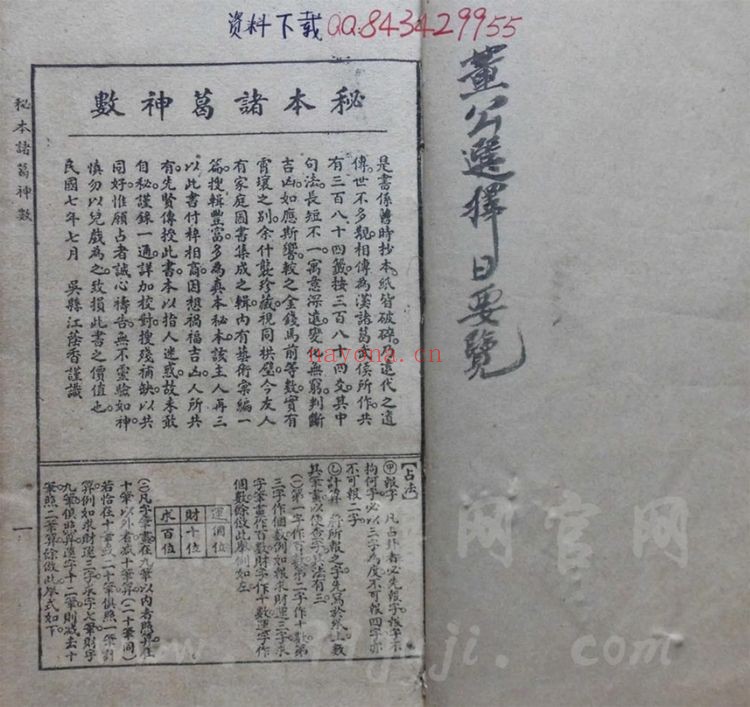 资料下载QQ:843429955
董公選擇日要覽
秘本諸葛神數
秘本諸葛神數
是書係舊時抄本紙皆破碎乃遠代之遺
傳世不多覯相傳為漢諸葛武侯所作共
有三百八十四籤按三百八十四爻其中
句法長短不一寓意深遠變化無窮判斷
吉凶如應斯響較之金錢馬前等數實有
霄壤之別余什襲珍藏視同拱璧今友人
有家庭圖書集成之輯內有藝術彙編一
篇搜輯豐富多為真本秘本該主人再三
以此書付梓相商因想禍福吉凶人所共
有先賢傳授此書本以指人迷惑故未敢
自秘謹錄一通詳加校對搜殘補缺以共
同好惟願占者誠心禱告無不靈驗如神
慎勿以兒戲為之致損此書之價值也
民國七年七月 吳縣江蔭香謹識
【占法】
㊙報字 凡占卦者必先報字報字不
拘何字必以三字為度不可報四字亦
不可報二字
計算 將所報之字先寫於紙上數
其筆畫以便查字其法有三
(一)第一字作百數第二字作十數第
三字作個數例如報求財運三字求
字筆畫作百數財字作十數運字作
個數餘倣此舉例如左
運個位
財十位
求百位
(二)凡字筆畫在九筆以內者照算在
十筆以外者減十筆算(二十筆同)
若恰在十筆或二十筆俱照一架對
算例如求財運三字求字七筆財字
九筆俱照算運字十二筆則減去十
筆照二筆算餘倣此舉式如下
一
nayona.cn
网官网
jyji.com